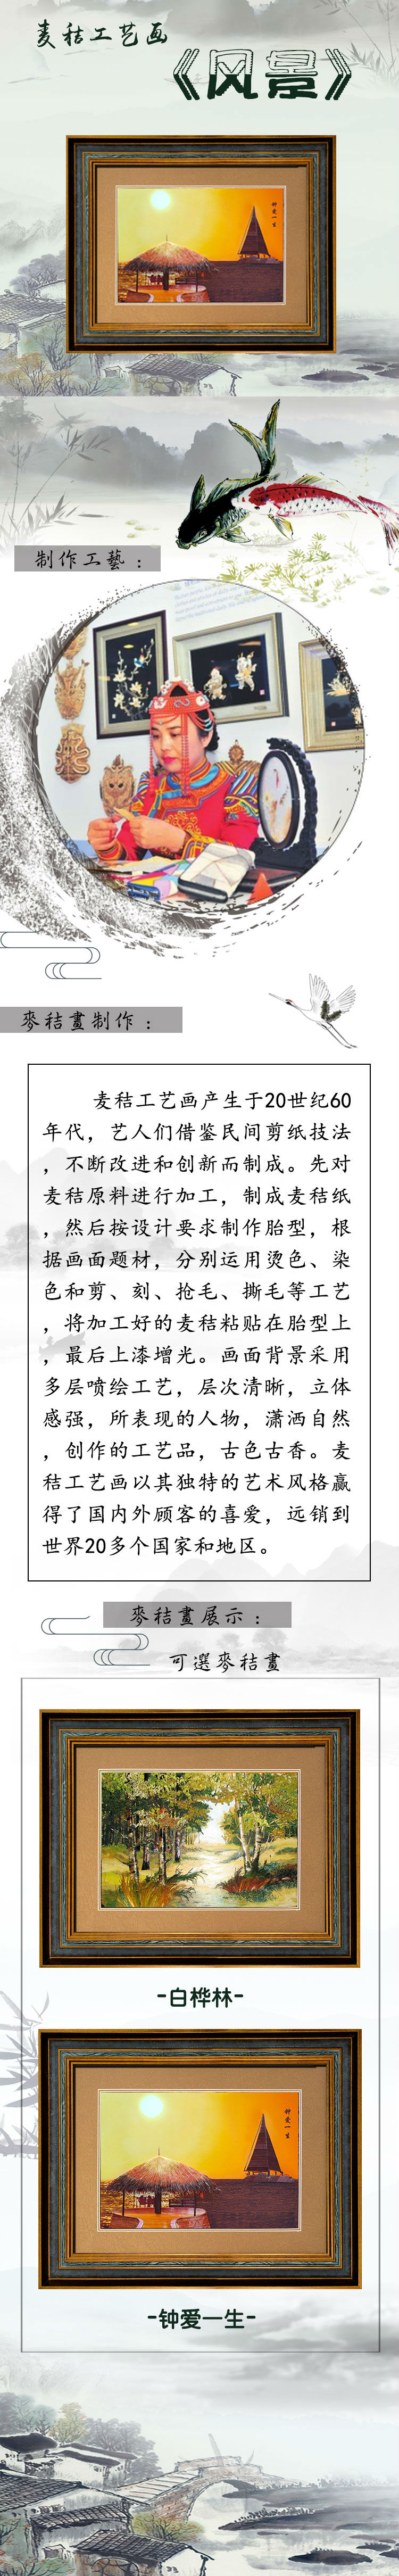 麦秸工艺画
《风景》
钟爱一生
制作工藝：
麥秸畫制作：
麦秸工艺画产生于20世纪60
年代，艺人们借鉴民间剪纸技法
，不断改进和创新而制成。先对
麦秸原料进行加工，制成麦秸纸
，然后按设计要求制作胎型，根
据画面题材，分别运用烫色、染
色和剪、刻、抢毛、撕毛等工艺
，将加工好的麦秸粘贴在胎型上
，最后上漆增光。画面背景采用
多层喷绘工艺，层次清晰，立体
感强，所表现的人物，潇洒自然
，创作的工艺品，古色古香。麦
秸工艺画以其独特的艺术风格赢
得了国内外顾客的喜爱，远销到
世界20多个国家和地区。
麥秸畫展示：
可選麥秸畫
-白桦林-
钟爱一生
-钟爱一生-